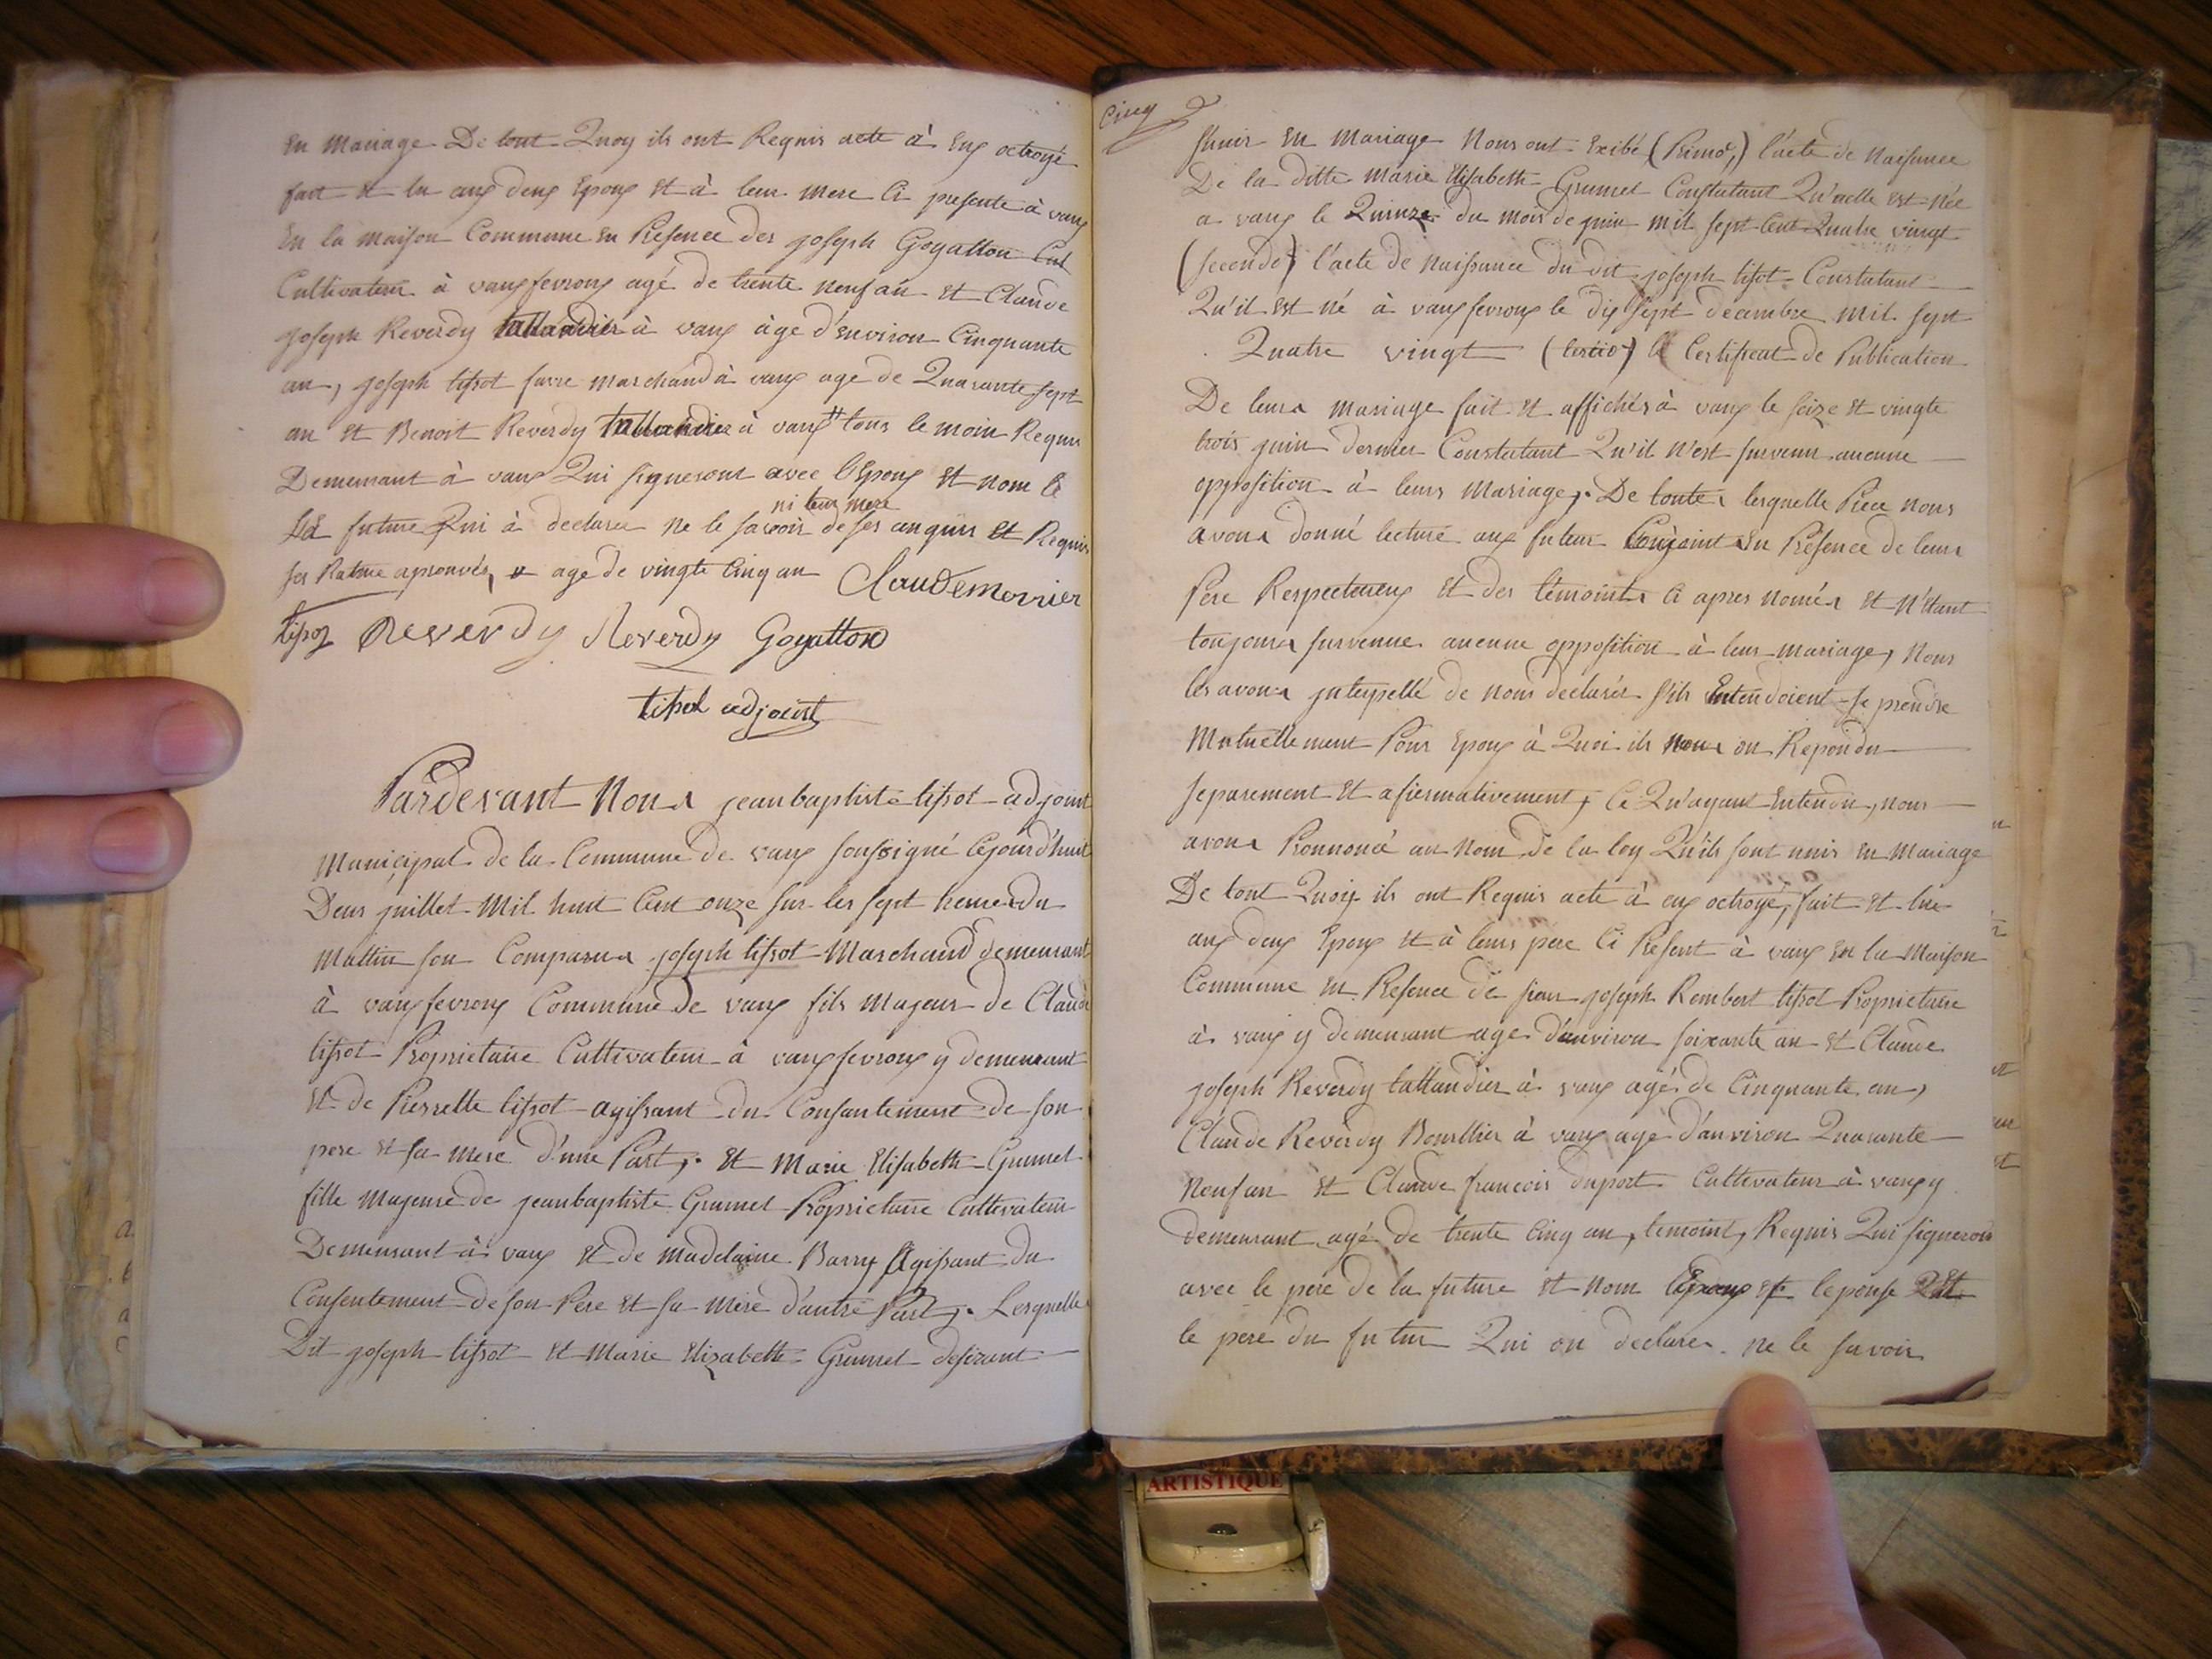 En mariage De tout Quoy ils ont Requis acte à Eux octroyé
fait et lu aux deux Epoux et à leur mere Ci presente à vaux
En la maison Commune en Presence des joseph Goyatton Cul
Cultivateur à vauxfevroux agé de trente neuf an et Claude
joseph Reverdy tallandier à vaux àge d'Environ Cinquante
an, joseph tissot favre marchand à vaux age de Quarante sept
an et Benoit Reverdy tallandier à vaux # tous le moin Requis
Demeurant à vaux Qui signeront avec l'Epoux et nom le
ni leur mere
La future Qui à declarer ne le savoir de ses enquis et Requis
ses Rature aprouvés, # age de vingte Cinq an Claude mernier
tissot Reverdy Reverdy Goyatton
tissot adjoint
Pardevant Nous jeanbaptiste tissot adjoint
Municipal de la Commune de vaux soussigné Cejourd'huit
Deux juillet Mil huit Cent onze sur les sept heures du
Mattin son Comparus joseph tissot Marchand demeurant
à vauxfevroux Commune de vaux fils Majeur de Claude
tissot Proprietaire Cultivateur à vauxfevroux y demeurant
et de Pierrette tissot agissant du Consantement de son
pere et sa mere d'une Part, et Marie Elisabeth Grumet
fille Majeure de jeanbaptiste Grumet Proprietaire Cultivateur
Demeurant à vaux et de madelaine Barry Agissant du
Consentement de son Pere et sa mere d'autre Part, Lesquelle
Dit joseph tissot et Marie Elizabeth Grumet desirant
Cinq
s'unir en Mariage Nous ont Exibé (Primo,) l'acte de Naissance
De la ditte Marie Elisabeth Grumet Constatant Qu'aelle est Née
a vaux le Quinze du mois de juin mil sept Cent Quatre vingt
(secundo) l'acte de Naissance du dit joseph tissot Constatant
Qu'il est né à vauxfevroux le dix sept décambre mil sept
Quatre vingt (tercio) le Certificat de Publication
De leurs mariage fait et affichés à vaux le seize et vingte
trois juin dernier Constatant Qu'il n'est survenu aucune
opposition à leurs Mariage,. De toutes lesquelle Piece nous
avons donné lecture aux futeur Conjoint En Présence de leurs
Pere Respecteuex et des témoints Ci apres noméz et N'étant
toujours survenue aucune opposition à leur mariage, Nous
les avons jnterpellé de nous declarér s'ils Entendoient se prendre
Mutuellement Pour Epoux à Quoi ils nous on Repondu
separement et afiermativement, Ce Qu'ayant Entendu, nous
avons Prononcé au Nom de la loy Qu'ils sont unis en Mariage
De tout Quoy ils ont Requis acte à eux octroyé, fait et lue
aux deux Epoux et à leurs pere Ci Present à vaux en la Maison
Commune en Presence de sieur joseph Rembert tissot Proprietaire
à vaux y demeurant age d'anviron soixante an et Claude
joseph Reverdy tallandier à vaux agé de Cinquante an,
Claude Reverdy Bourllier à vaux agé d'anviron Quarante
Neuf an et Claude francois duport Cultivateur à vaux y
demeurant agé de trente Cinq an, temoint, Requis Qui signeron
avec le pere de la future et nom lépoux et lepouse Et
le pere du futur Qui on declarer ne le savoir
ARTISTIQUE